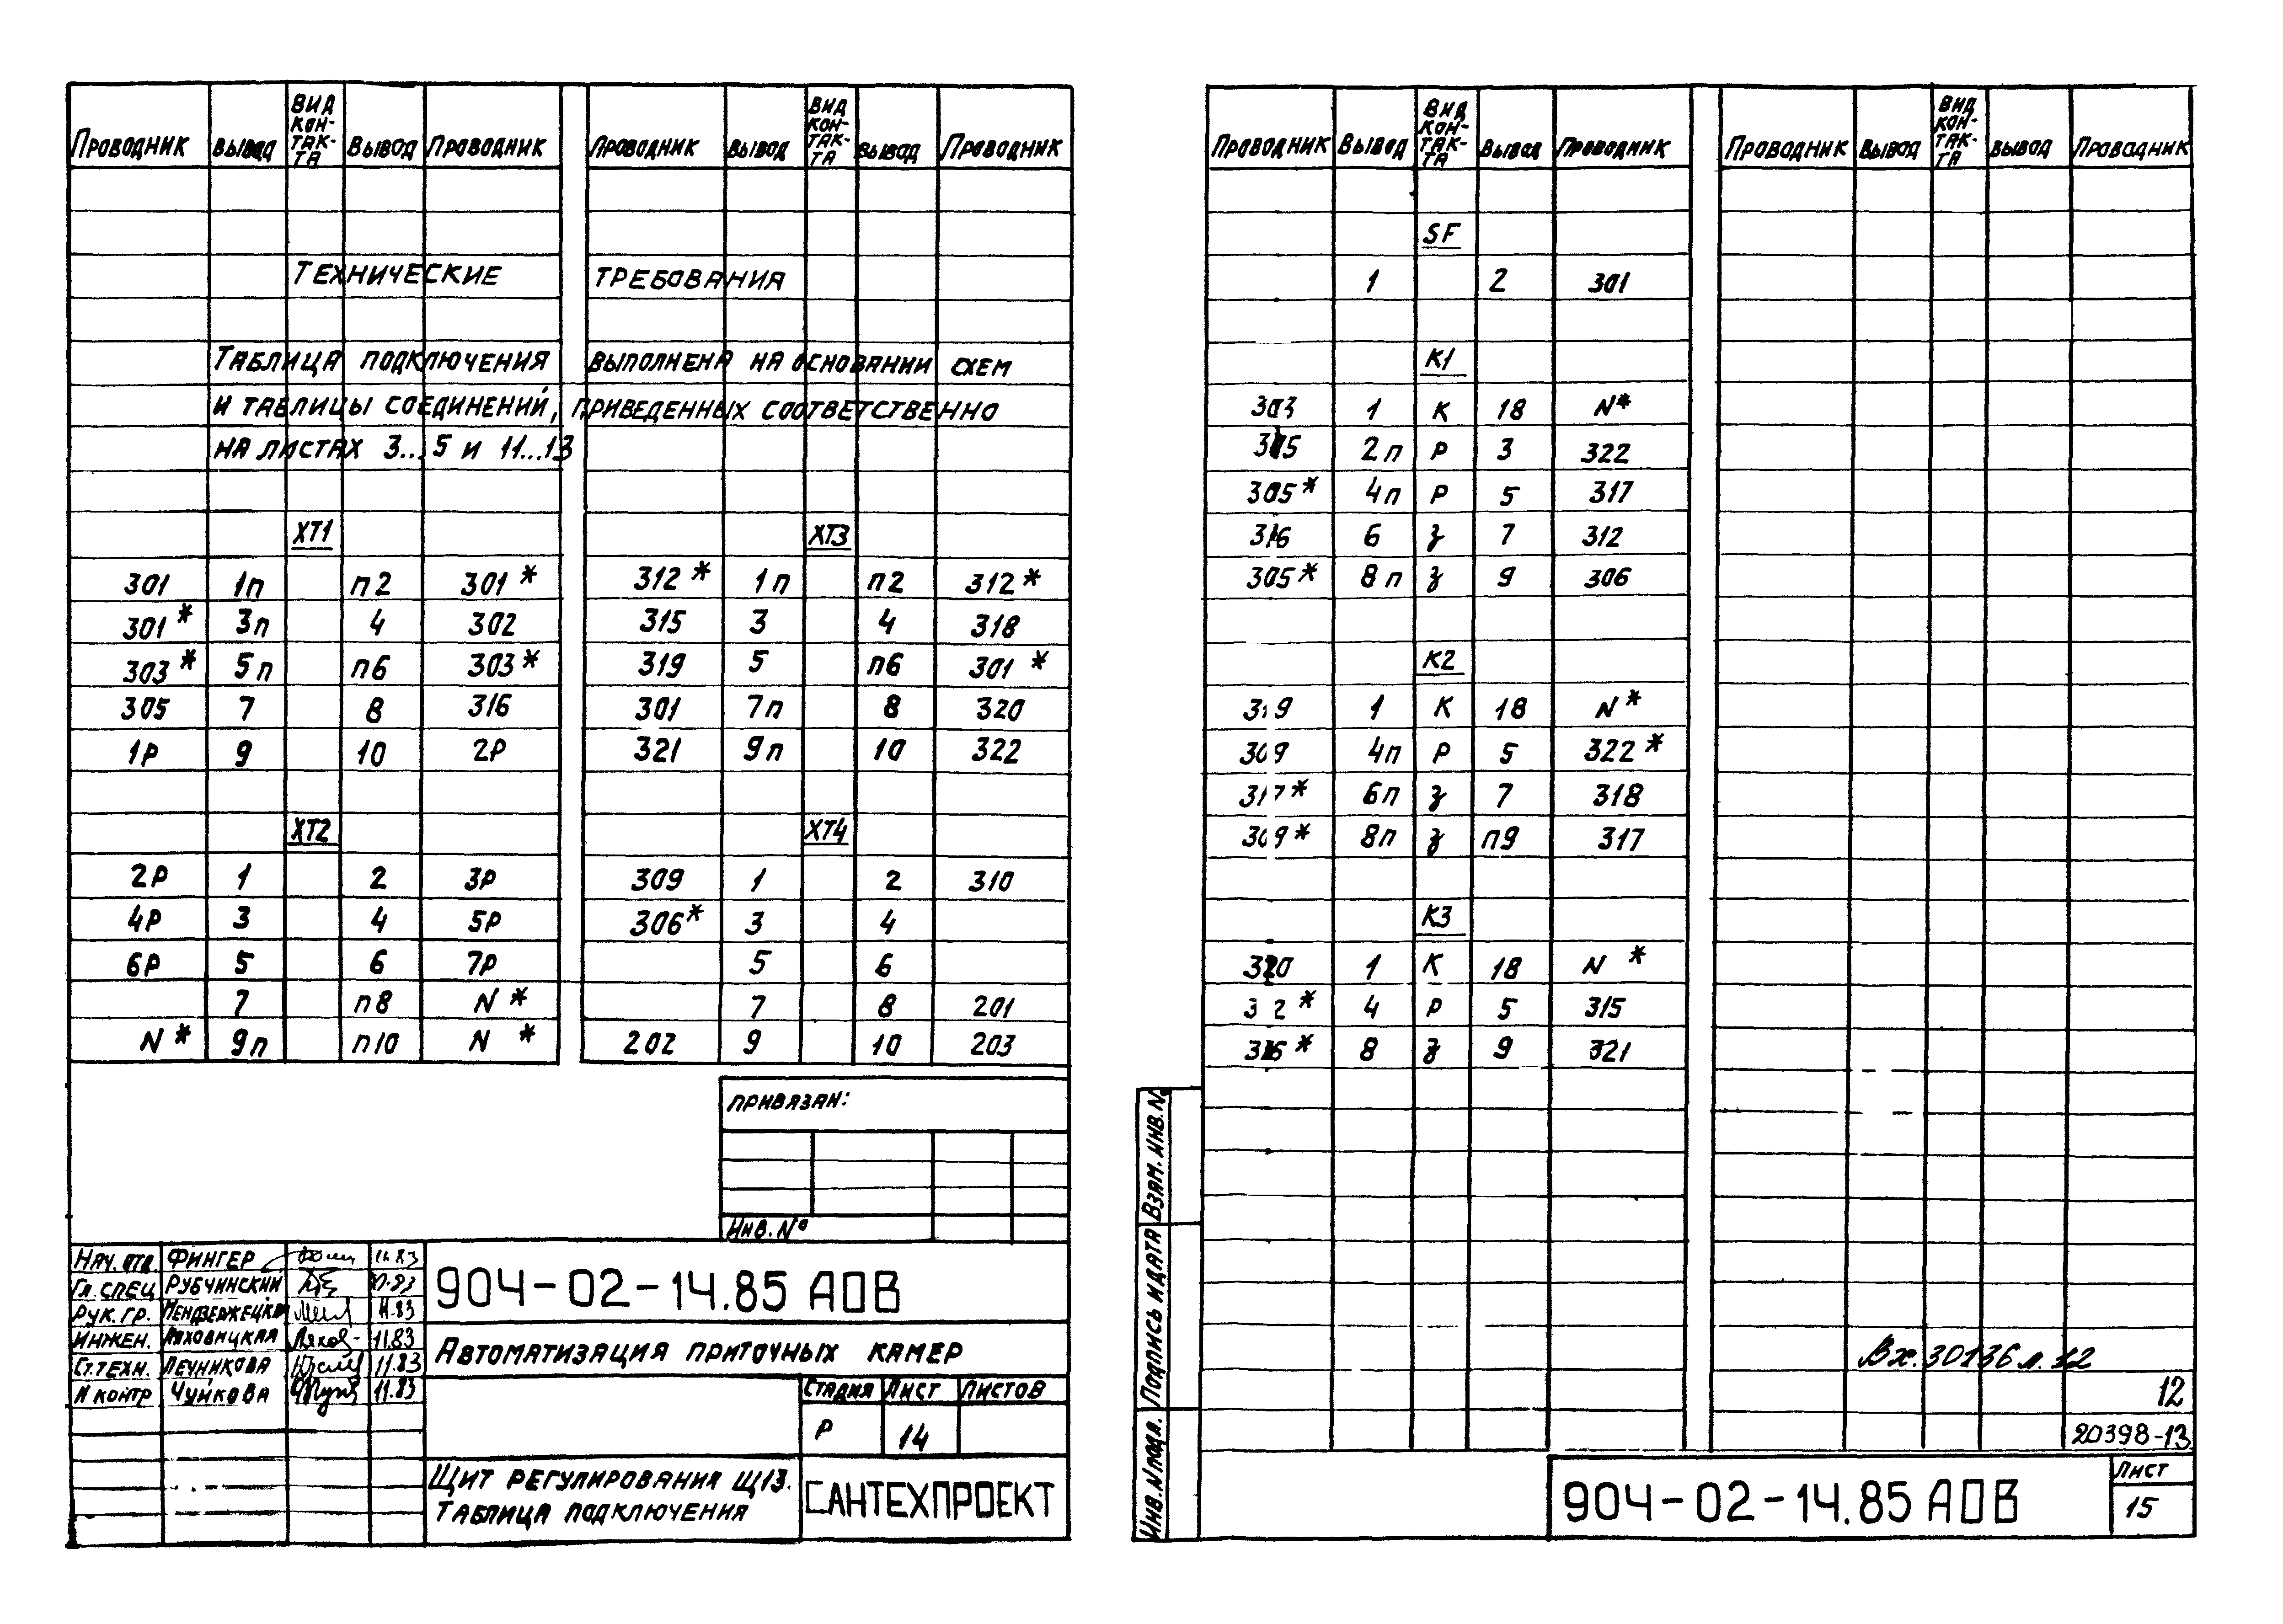 Проводник Вывод Вид контакта Вывод Проводник Проводник Вывод Вид контакта Вывод Проводник
Технические требования
Таблица подключения выполнена на основании схем
и таблицы соединений, приведенных соответственно
на листах 3...5 и 11...13
XT1 XT3
301 1п п2 301* 312* 1п п2 312*
301* 3п 4 302 315 3 4 318
303* 5п п6 303* 319 5 п6 301*
305 7 8 316 301 7п 8 320
1Р 9 10 2Р 321 9п 10 322
XT2 XT4
2Р 1 2 3Р 309 1 2 310
4Р 3 4 5Р 306* 3 4
6Р 5 6 7Р 5 6
7 п8 N* 7 8 201
N* 9п п10 N* 202 9 10 203
Привязан:
Инв. №
Нач. отд. Фингер 11.83
Гл. спец Рубчинский 11.83
Рук. гр. Мендзержецкая 11.83
Инжен. Ляховицкая 11.83
Ст. техн. Печникова 11.83
Н контр Чумкова 11.83
904-02-14.85 АОВ
Автоматизация приточных камер
Стадия Лист Листов
Р 14
Щит регулирования Щ13.
Таблица подключения
САНТЕХПРОЕКТ
Проводник Вывод Вид контакта Вывод Проводник Проводник Вывод Вид контакта Вывод Проводник
SF
1 2 301
K1
303 1 К 18 N*
305 2п Р 3 322
305* 4п Р 5 317
316 6 з 7 312
305* 8п з 9 306
K2
319 1 К 18 N*
309 4п Р 5 322*
317* 6п з 7 318
309* 8п з п9 317
K3
320 1 К 18 N*
4 Р 5 315
316* 8 з 9 321
Взам. инв. №
Подпись и дата
Инв. № подл.
Вх. 30136 л. 12
12
20398-13
904-02-14.85 АОВ
Лист
15